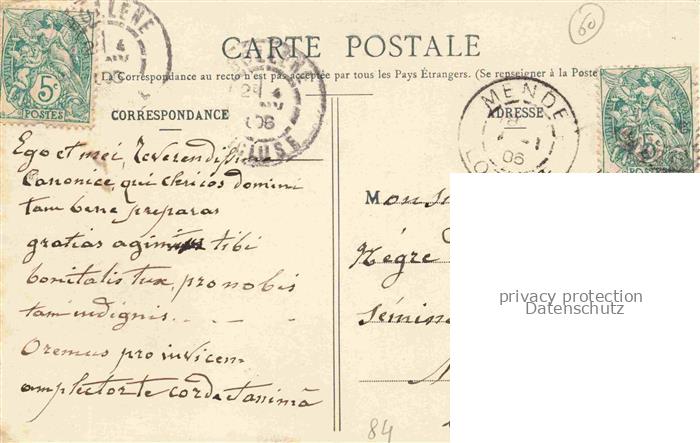 CARTE POSTALE
60
La Correspondance au recto n'est pas acceptée par tous les Pays Étrangers. (Se renseigner à la Poste
CORRESPONDANCE
ADRESSE
5c
POSTES
LLÈNE
4
06
25 4
08
MENDE
06
LO
Ego et mei, Reverendissime
Canonice, qui clericos domini
tam bene preparas
gratias agimus tibi
bonitatis tuæ, pro nobis
tam indignis. . . . .
Oremus pro invicem
amplector te corde et animâ
Monsi
Nègre
Sémina
84
privacy protection
Datenschutz